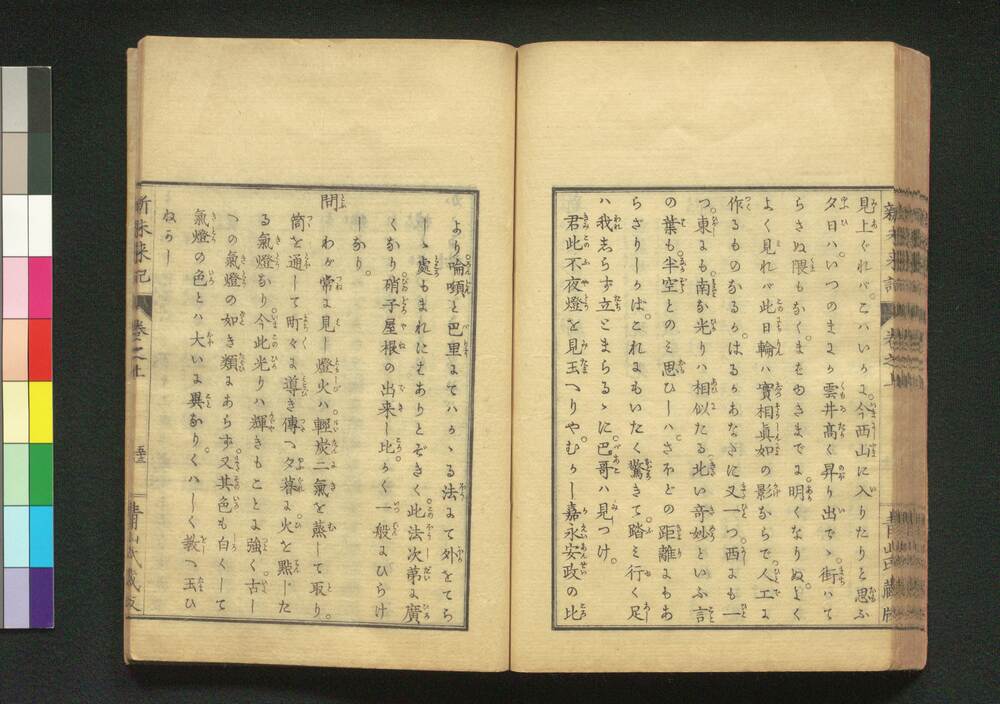 見上ぐれバ。こハいかに。今西山に入りたりと思ふ
夕日ハ。いつのまにか雲井高く昇り出でゝ。街ハて
らさぬ隈もなくまぢかきまでに。明くなりりぬ。よく
よく見れバ此日輪ハ實相眞如の影ならで。人工に
作くるものなるか。はるかあなたに又一つ。西にも一
つ。東にも。南にも光りハ相似たる北い奇妙といふ言
の葉も。半空とのミ思ひしハ。さほどの距離もあ
らざりしかは。これにもいたく驚きて。踏ミ行く足
ハ我しらず立とまらるゝに。巴哥ハ見つけ。
君此不夜燈を見玉へりやむかし嘉永安政の比
より。喩頓と巴里にてハかゝる法にて外をてら
しゝ處もまれにはありとぞきく此法次第に廣
くなり硝子屋根の出来し比。かく一般にひらけ
しなり。
問 わが常に見し燈火ハ。輕炭二氣を蒸して取り。
筒を通して町々に導き傳へ夕暮に火を點じた
る氣燈なり今此光りハ輝きもことに強く。古し
への氣燈の如き類にあらず。又其色も白くして
氣燈の色とハ大いに異なり。くハしく教へ玉ひ
ねかし
新未来記 巻之上 青山氏蔵版